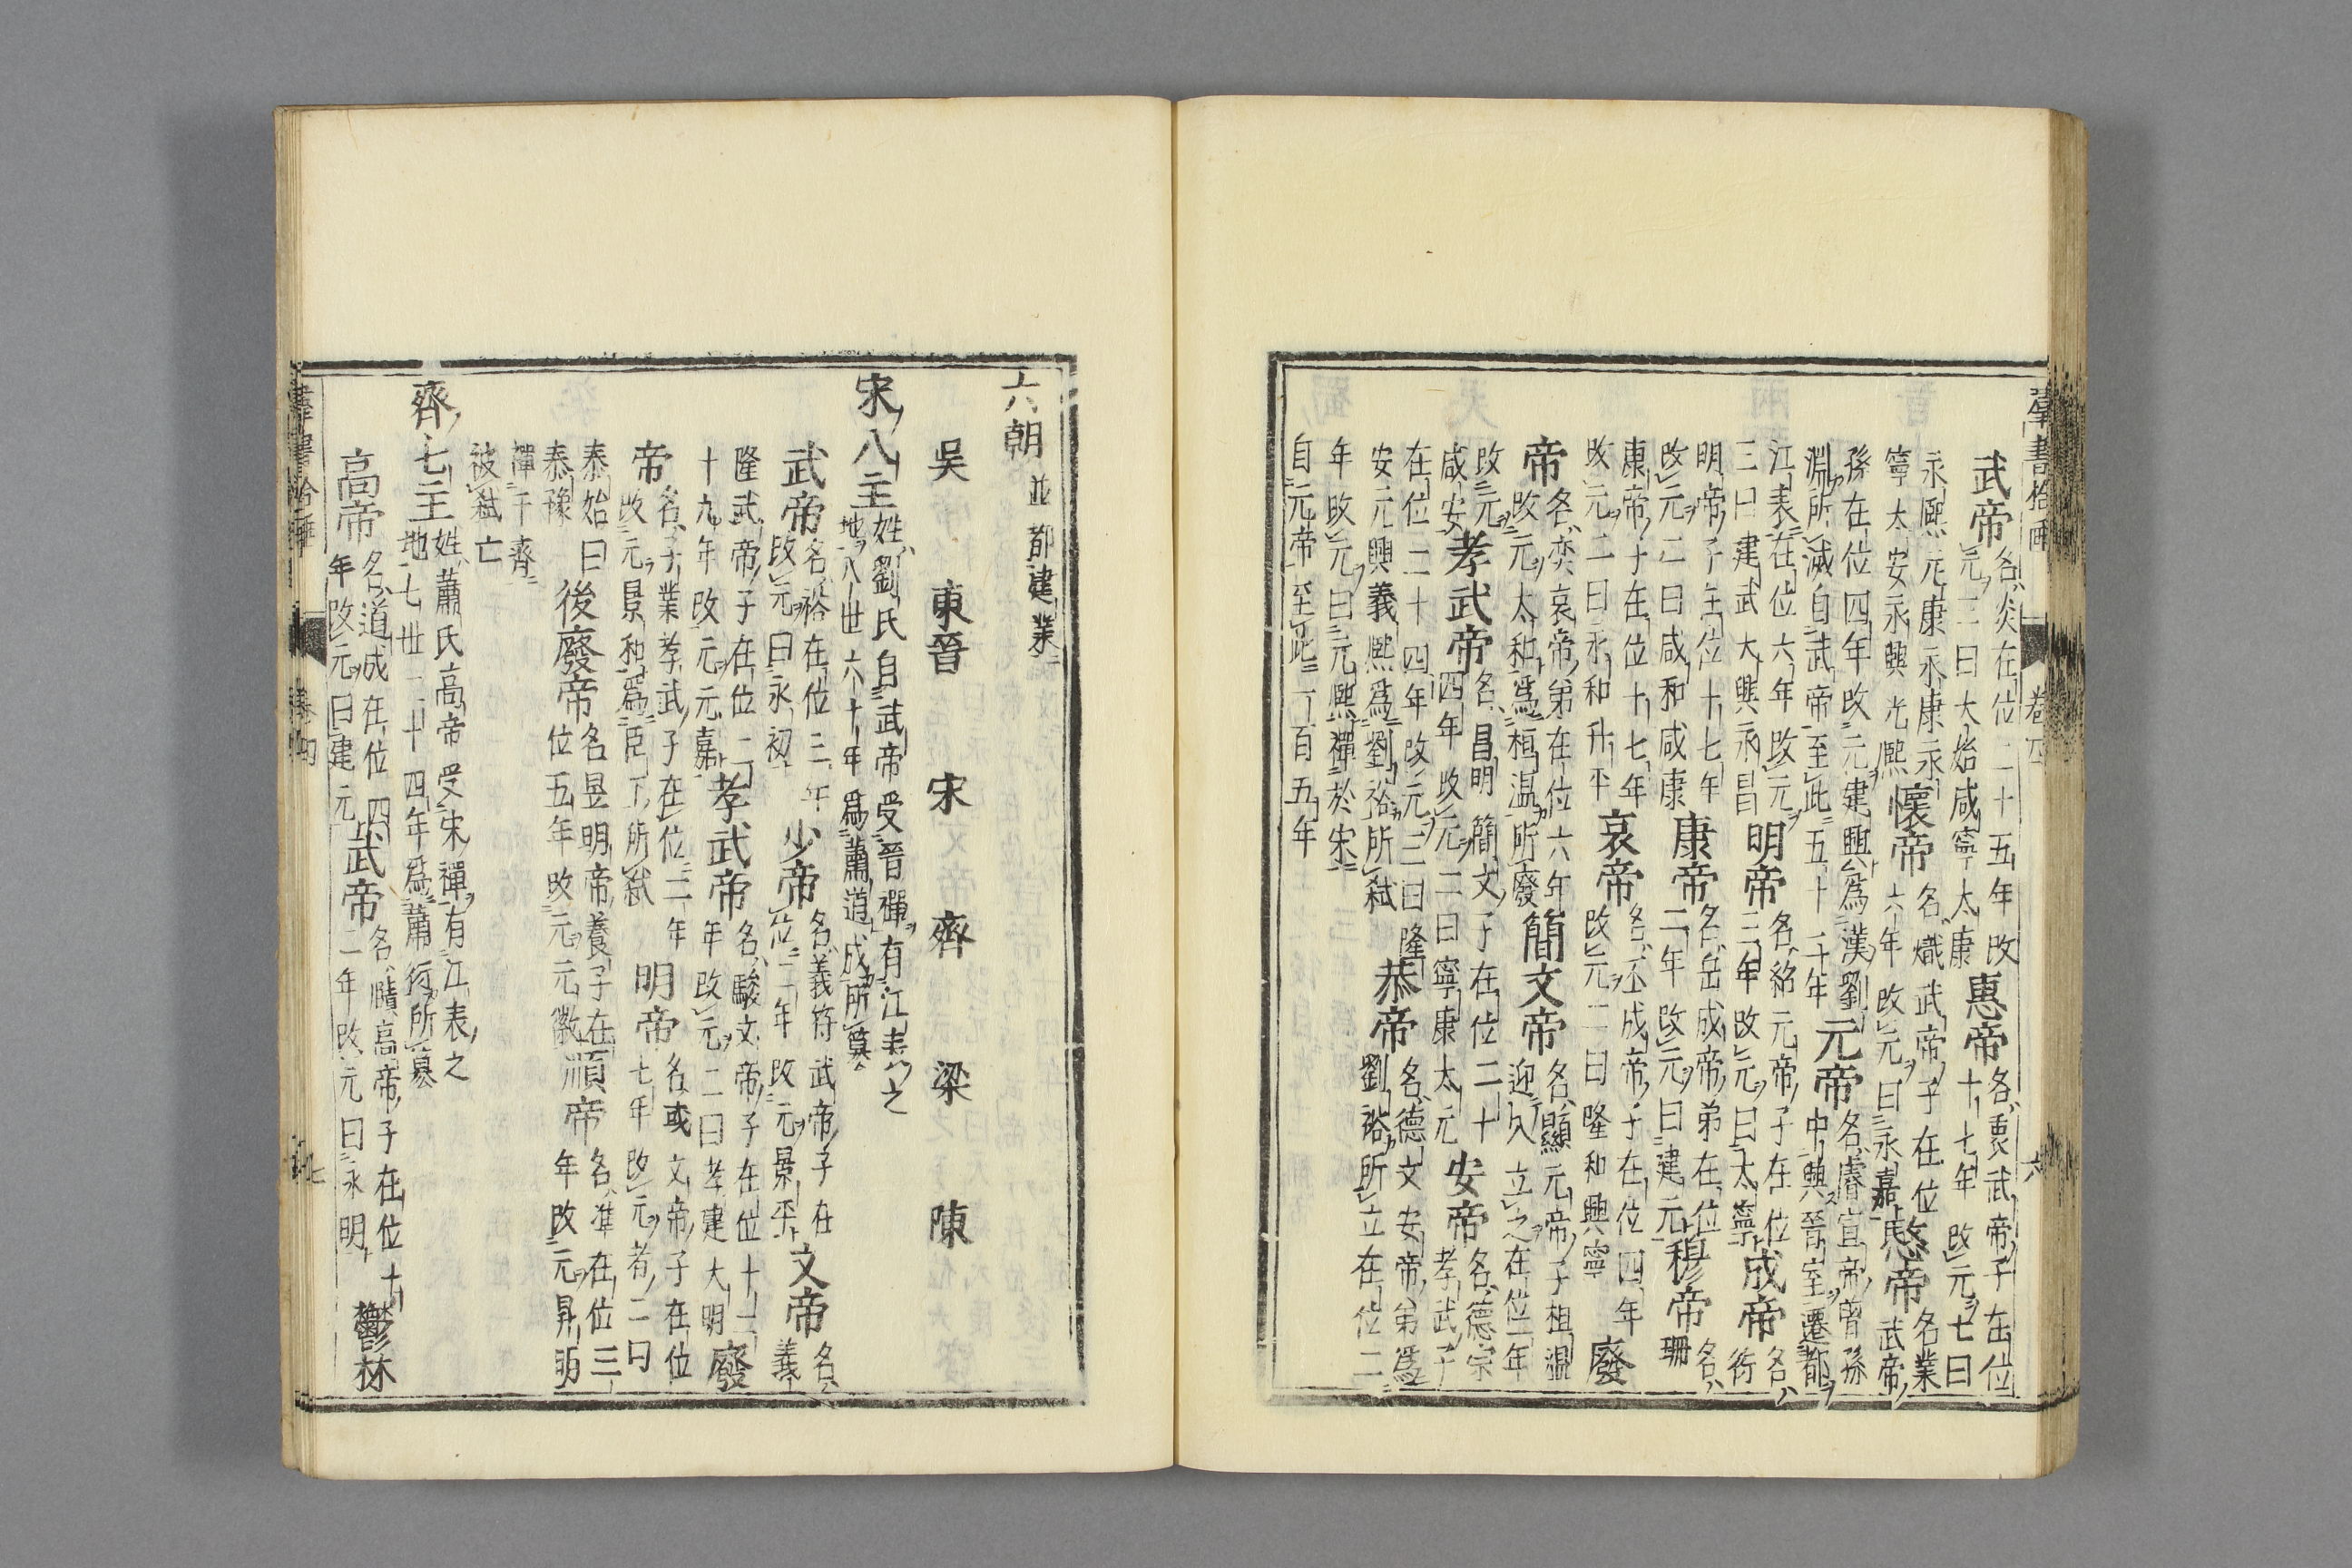 羣書拾唾 卷四 六
武帝 名炎在位二十五年改
元三曰大始咸寧太康 惠帝 名衷武帝子在位
十七年改元七曰
永熙元康永康永
寧太安永興光熙 懷帝 名熾武帝子在位
六年改元曰永嘉 愍帝 名業
武帝
孫在位四年改元建興爲漢劉
淵所滅自武帝至此五十二年 元帝 名睿宣帝曾孫
中興晉室遷都
江表在位六年改元
三曰建武大興永昌 明帝 名紹元帝子在位
三年改元曰太寧 成帝 名衍
明帝子在位十七年
改元二曰咸和咸康 康帝 名岳成帝弟在位
二年改元曰建元 穆帝 名珊
康帝子在位十七年
改元二曰永和升平 哀帝 名丕成帝子在位四年
改元二曰隆和興寧 廢
帝 名奕哀帝弟在位六年
改元太和爲桓温所廢 簡文帝 名顯元帝子桓温
迎久立之在位二年
改元
咸安 孝武帝 名昌明簡文子在位二十
四年改元二曰寧康太元 安帝 名德宗
孝武子
在位二十四年改元三曰隆
安元興義熙爲劉裕所弑 恭帝 名德文安帝弟爲
劉裕所立在位二
年改元曰元熙禪於宋
自元帝至此一百五年
六朝 並都建業
吳 東晉 宋 齊 梁 陳
宋八主 姓劉氏自武帝受晉禪有江表之
地八世六十年爲蕭道成所簒
武帝 名裕在位三年
改元曰永初 少帝 名義符武帝子在
位二年改元景平 文帝 名
義
隆武帝子在位二
十九年改元元嘉 孝武帝 名駿文帝子在位十一
年改元二曰孝建大明 廢
帝 名子業孝武子在位二年
改元景和爲臣下所弑 明帝 名或文帝子在位
七年改元者二曰
泰始曰
泰豫 後廢帝 名昱明帝養子在
位五年改元元徽 順帝 名準在位三
年改元昇明
禪于齊
被弑亡
齊七主 姓蕭氏高帝受宋禪有江表之
地七世二十四年爲蕭衍所簒
高帝 名道成在位四
年改元曰建元 武帝 名賾高帝子在位十
二年改元曰永明 鬱林
羣書拾唾 卷四 七